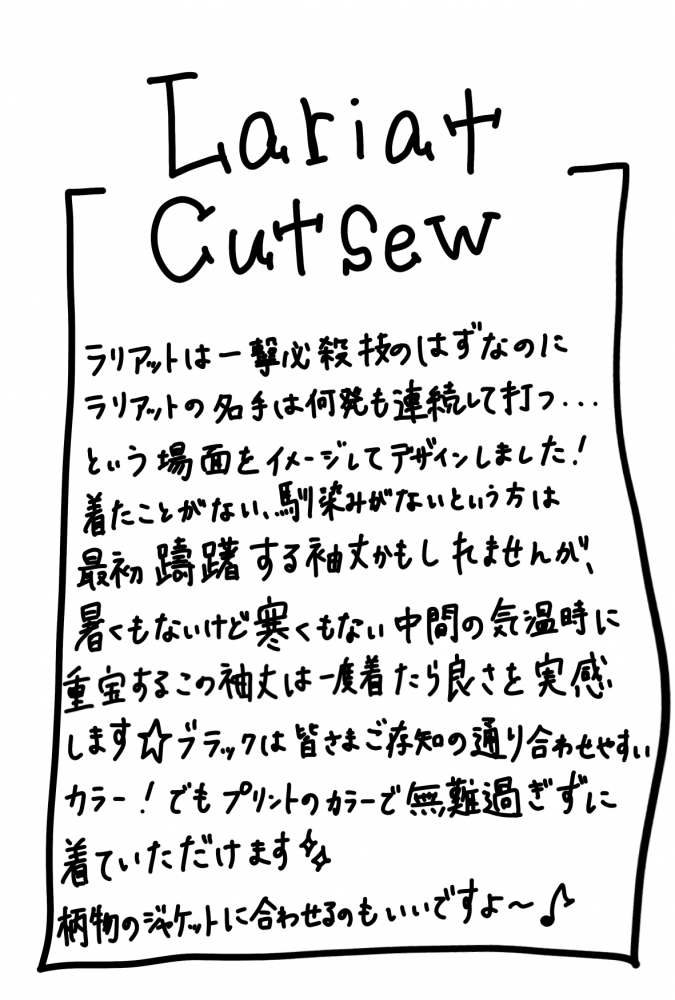 Lariat
Cutsew
ラリアットは一撃必殺技のはずなのに
ラリアットの名手は何発も連続して打つ...
という場面をイメージしてデザインしました!
着たことがない、馴染みがないという方は
最初躊躇する袖丈かもしれませんが、
暑くもないけど寒くもない中間の気温時に
重宝するこの袖丈は一度着たら良さを実感
します☆ブラックは皆さまご存知の通り合わせやすい
カラー!でもプリントのカラーで無難過ぎずに
着ていただけます✨
柄物のジャケットに合わせるのもいいですよ〜♪